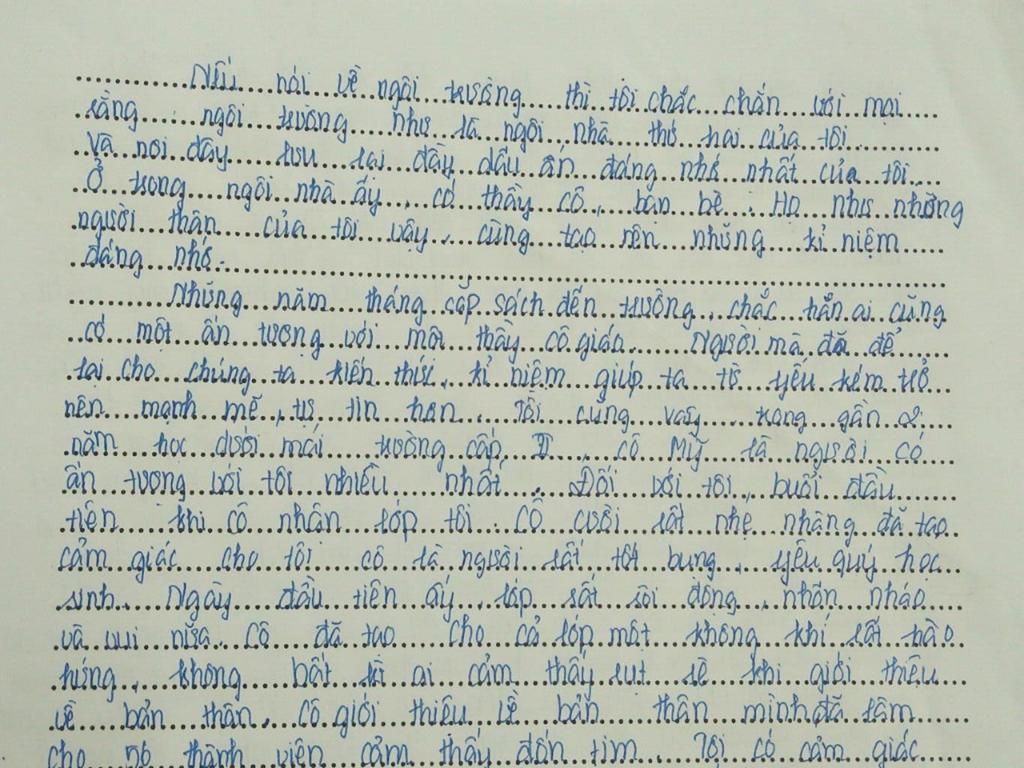 Nếu nói về ngôi trường thì tôi chắc chắn với mọi
rằng ngôi trường như là ngôi nhà thứ hai của tôi.
Và nơi đây lưu lại đầy dấu ấn đáng nhớ nhất của tôi.
Ở trong ngôi nhà ấy, có thầy cô, bạn bè. Họ như những
người thân của tôi vậy, cùng tạo nên những kỉ niệm
đáng nhớ.
Những năm tháng cắp sách đến trường, chắc hẳn ai cũng
có một ấn tượng với một thầy cô giáo. Người mà đã để
lại cho chúng ta kiến thức, kỉ niệm giúp ta từ yếu kém trở
nên mạnh mẽ, tự tin hơn. Tôi cũng vậy, trong gần 2
năm học dưới mái trường cấp II, cô Mỹ là người có
ấn tượng với tôi nhiều nhất. Đối với tôi, buổi đầu
tiên khi cô nhận lớp tôi. Cô cười rất nhẹ nhàng đã tạo
cảm giác cho tôi cô là người rất tốt bụng, yêu quý học
sinh. Ngày đầu tiên ấy, lớp rất sôi động, nhốn nháo
và vui nữa. Cô đã tạo cho cả lớp một không khí rất hào
hứng, không bất kì ai cảm thấy rụt rè khi giới thiệu
về bản thân. Cô giới thiệu về bản thân mình đã làm
cho 56 thành viên cảm thấy đốn tim. Tôi có cảm giác